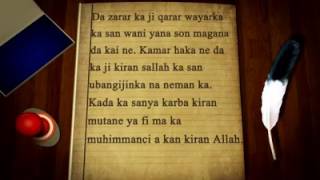 Da zarar ka ji qarar wayarka
ka san wani yana son magana
da kai ne. Kamar haka ne da
ka ji kiran sallah ka san
ubangijinka na neman ka.
Kada ka sanya karba kiran
mutane ya fi ma ka
muhimmanci a kan kiran Allah.